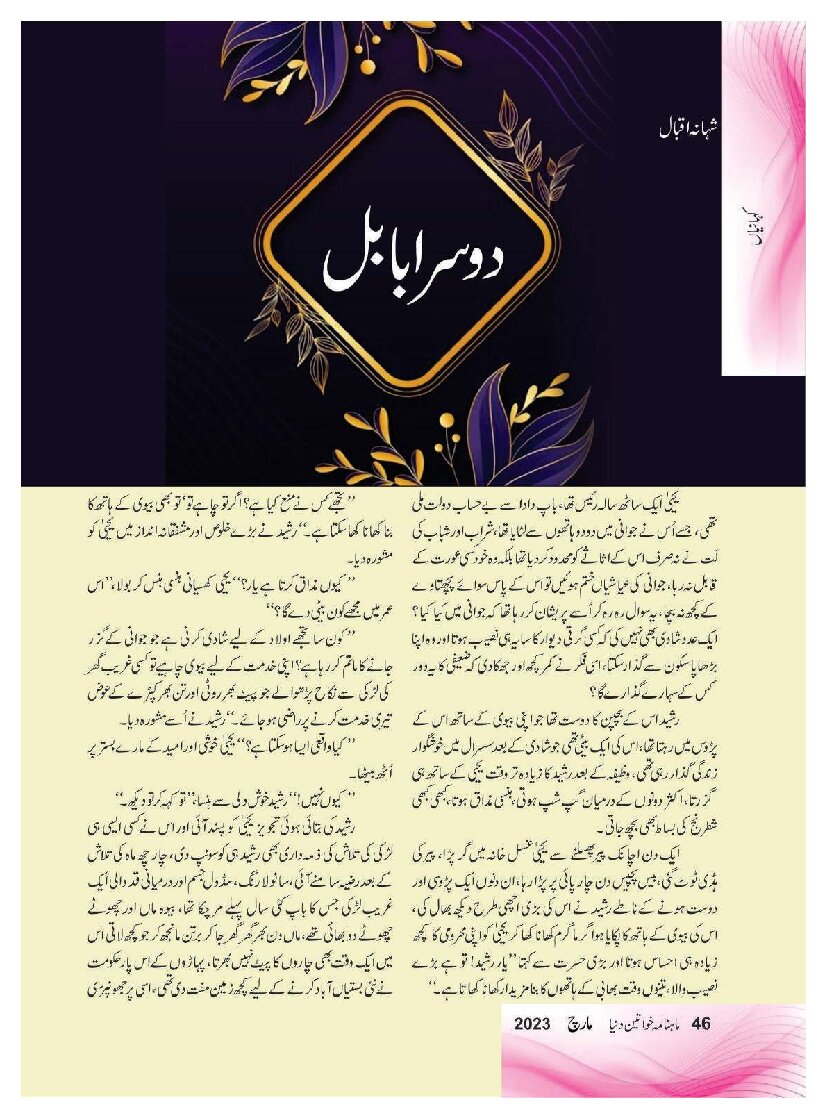 شہانہ اقبال
کہانیاں
دوسرا بابل
یحییٰ ایک ساٹھ سالہ رئیس تھا، باپ دادا سے بے حساب دولت ملی
تھی، جسے اُس نے جوانی میں دو دو ہاتھوں سے لٹایا تھا، شراب اور شباب کی
لت نے نہ صرف اس کے اثاثے کو محدود کر دیا تھا بلکہ وہ خود کسی عورت کے
قابل نہ رہا، جوانی کی عیاشیاں ختم ہوئیں تو اس کے پاس سوائے پچھتاوے
کے کچھ نہ بچا، یہ سوال رہ رہ کر اُسے پریشان کر رہا تھا کہ جوانی میں کیا کیا؟
ایک عدد شادی بھی نہیں کی کہ کسی گرتی دیوار کا سایہ ہی نصیب ہوتا اور وہ اپنا
بڑھاپا سکون سے گذار سکتا، اسی فکر نے کمر کچھ اور جھکا دی کہ ضعیفی کا یہ دور
کس کے سہارے گذارے گا؟
رشید اس کے بچپن کا دوست تھا جو اپنی بیوی کے ساتھ اس کے
پڑوس میں رہتا تھا، اس کی ایک بیٹی تھی جو شادی کے بعد سسرال میں خوشگوار
زندگی گذار رہی تھی، وظیفہ کے بعد رشید کا زیادہ تر وقت یحییٰ کے ساتھ ہی
گزرتا، اکثر دونوں کے درمیان گپ شپ ہوتی، ہنسی مذاق ہوتا، کبھی کبھی
شطرنج کی بساط بھی بچھ جاتی۔
ایک دن اچانک پیر پھسلنے سے یحییٰ غسل خانہ میں گر پڑا، پیر کی
ہڈی ٹوٹ گئی، بیس پچیس دن چار پائی پر پڑا رہا، ان دنوں ایک پڑوسی اور
دوست ہونے کے ناطے رشید نے اس کی بڑی اچھی طرح دیکھ بھال کی،
اس کی بیوی کے ہاتھ کا پکایا ہوا گرما گرم کھانا کھا کر یحییٰ کو اپنی محرومی کا کچھ
زیادہ ہی احساس ہوتا اور بڑی حسرت سے کہتا ’’یار رشید! تو ہے بڑے
نصیب والا، تینوں وقت بھابی کے ہاتھوں کا بنا مزیدار کھانا کھاتا ہے۔‘‘
’’تجھے کس نے منع کیا ہے؟ اگر تو چاہے تو‘ تو بھی بیوی کے ہاتھ کا
بنا کھانا کھا سکتا ہے۔‘‘ رشید نے بڑے خلوص اور مشفقانہ انداز میں یحییٰ کو
مشورہ دیا۔
’’کیوں مذاق کرتا ہے یار؟‘‘ یحییٰ کھسیانی ہنسی ہنس کر بولا، ’’اس
عمر میں مجھے کون بیٹی دے گا؟‘‘
’’کون سا تجھے اولاد کے لیے شادی کرنی ہے جو جوانی کے گزر
جانے کا ماتم کر رہا ہے؟ اپنی خدمت کے لیے بیوی چاہیے تو کسی غریب گھر
کی لڑکی سے نکاح پڑھوالے جو پیٹ بھر روٹی اور تن بھر کپڑے کے عوض
تیری خدمت کرنے پر راضی ہو جائے۔‘‘ رشید نے اُسے مشورہ دیا۔
’’کیا واقعی ایسا ہو سکتا ہے؟‘‘ یحییٰ خوشی اور امید کے مارے بستر پر
اُٹھ بیٹھا۔
’’کیوں نہیں!‘‘ رشید خوش دلی سے ہنسا، ’’تو کہہ کر تو دیکھ۔‘‘
رشید کی بتائی ہوئی تجویز یحییٰ کو پسند آئی اور اس نے کسی ایسی ہی
لڑکی کی تلاش کی ذمہ داری بھی رشید ہی کو سونپ دی، چار چھ ماہ کی تلاش
کے بعد رضیہ سامنے آئی، سانولا رنگ، سڈول جسم اور درمیانی قد والی ایک
غریب لڑکی جس کا باپ کئی سال پہلے مر چکا تھا، بیوہ ماں اور چھوٹے
چھوٹے دو بھائی تھے، ماں دن بھر گھر گھر جا کر برتن مانجھ کر جو کچھ لاتی اس
میں ایک وقت بھی چاروں کا پیٹ نہیں بھرتا، پہاڑوں کے اس پار حکومت
نے نئی بستیاں آباد کرنے کے لیے کچھ زمین مفت دی تھی، اسی پر جھونپڑی
46 ماہنامہ خواتین دنیا مارچ 2023